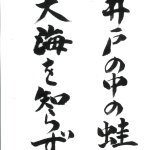 井戸の中の蛙
大海を知らず